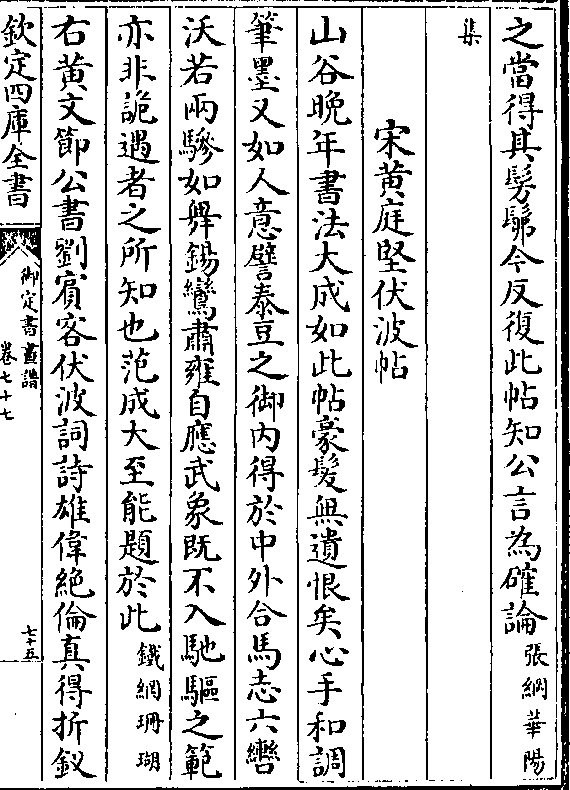 之當得其髣髴今反復此帖知公言為確論張綱華陽
集
宋黃庭堅伏波帖
山谷晚年書法大成如此帖豪髮無遺恨矣心手和調
筆墨又如人意譬泰豆之御内得於中外合馬志六轡
沃若兩驂如舞鍚鸞肅雍自應武象既不入馳驅之範
亦非詭遇者之所知也范成大至能題於此鐵網珊瑚
右黃文節公書劉賓客伏波詞詩雄偉絶倫真得折釵
欽定四庫全書
御定書畫譜
卷七十七
七十五